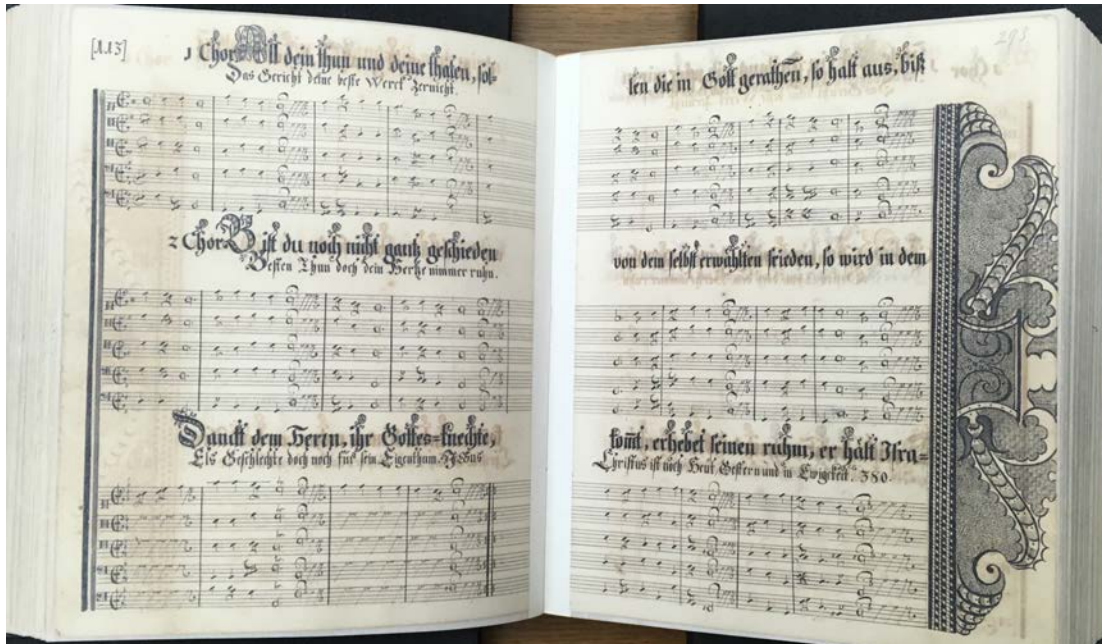 [113]
1 Chor. All dein thun und deine thaten, sol-
Das Gericht deine beste Werck zernicht.
2 Chor. Bist du noch nicht gantz geschieden
Besten Thun doch dein Hertze nimmer ruhn.
Danckt dem Herrn, ihr Gottes-knechte,
Els Geschlechte doch noch für sein Eigenthum.
293
len die in Gott gerathen, so halt aus, biß
von dem selbst erwählten frieden, so wird in dem
komt, erhebet seinen ruhm, er hält Isra-
Christus ist noch Heut Gestern und in Ewigkeit. 380.